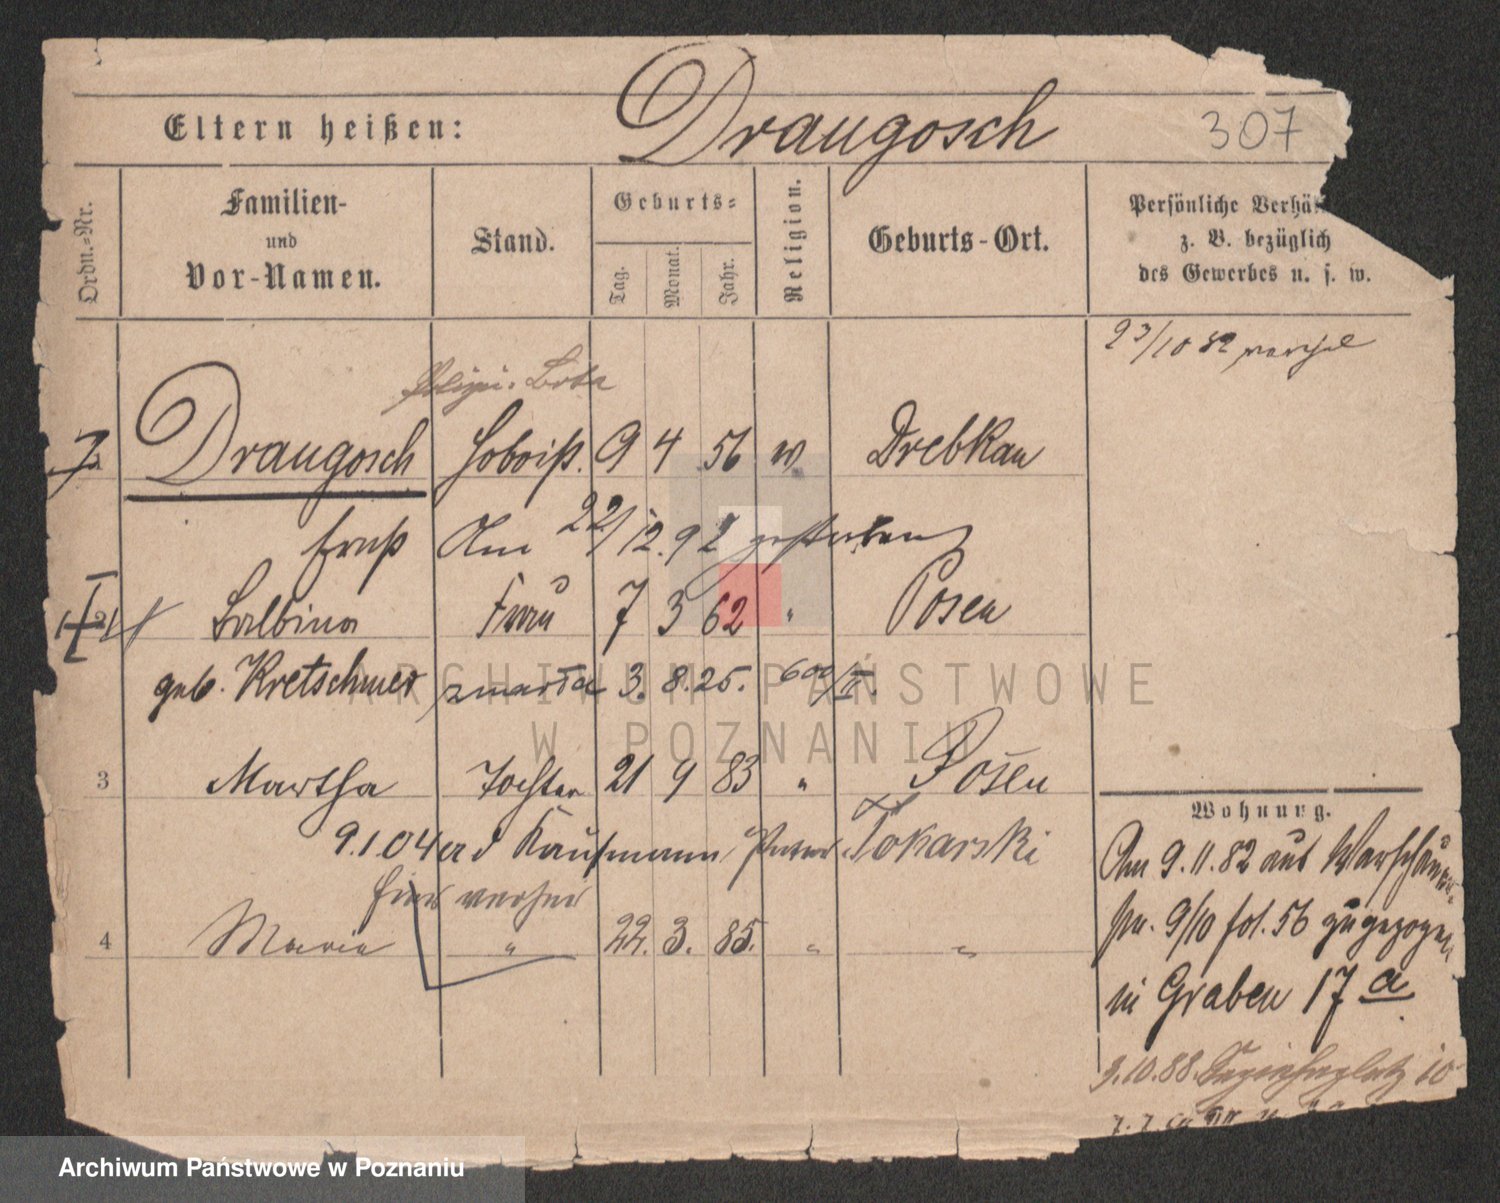 Eltern heißen: Draugosch 307
Ordn.=Nr. Familien- und Vor-Namen. Stand. Geburts= Tag. Monat. Jahr. Religion. Geburts-Ort. Persönliche Verhä
z. B. bezüglich
des Gewerbes u. s. w.
23/10 82
Draugosch Hoboist. 9 4 56 w Drebkau
Ernst Am 22/12.92 gestorben
2 Balbina Frau 7 3 62 " Posen
geb. Kretschmer zmarła 3. 8.25. 600/II.
3 Martha Tochter 21 9 83 " Posen
9.1.04 Kaufmann Tokarski
hier
4 Maria " 22. 3. 85. " "
Wohnung.
Am 9.11.82 aus Warschauer
str. 9/10 fol. 56 zugezogen
in Graben 17 a
3.10.88. 10
ARCHIWUM PAŃSTWOWE
W POZNANIU
Archiwum Państwowe w Poznaniu